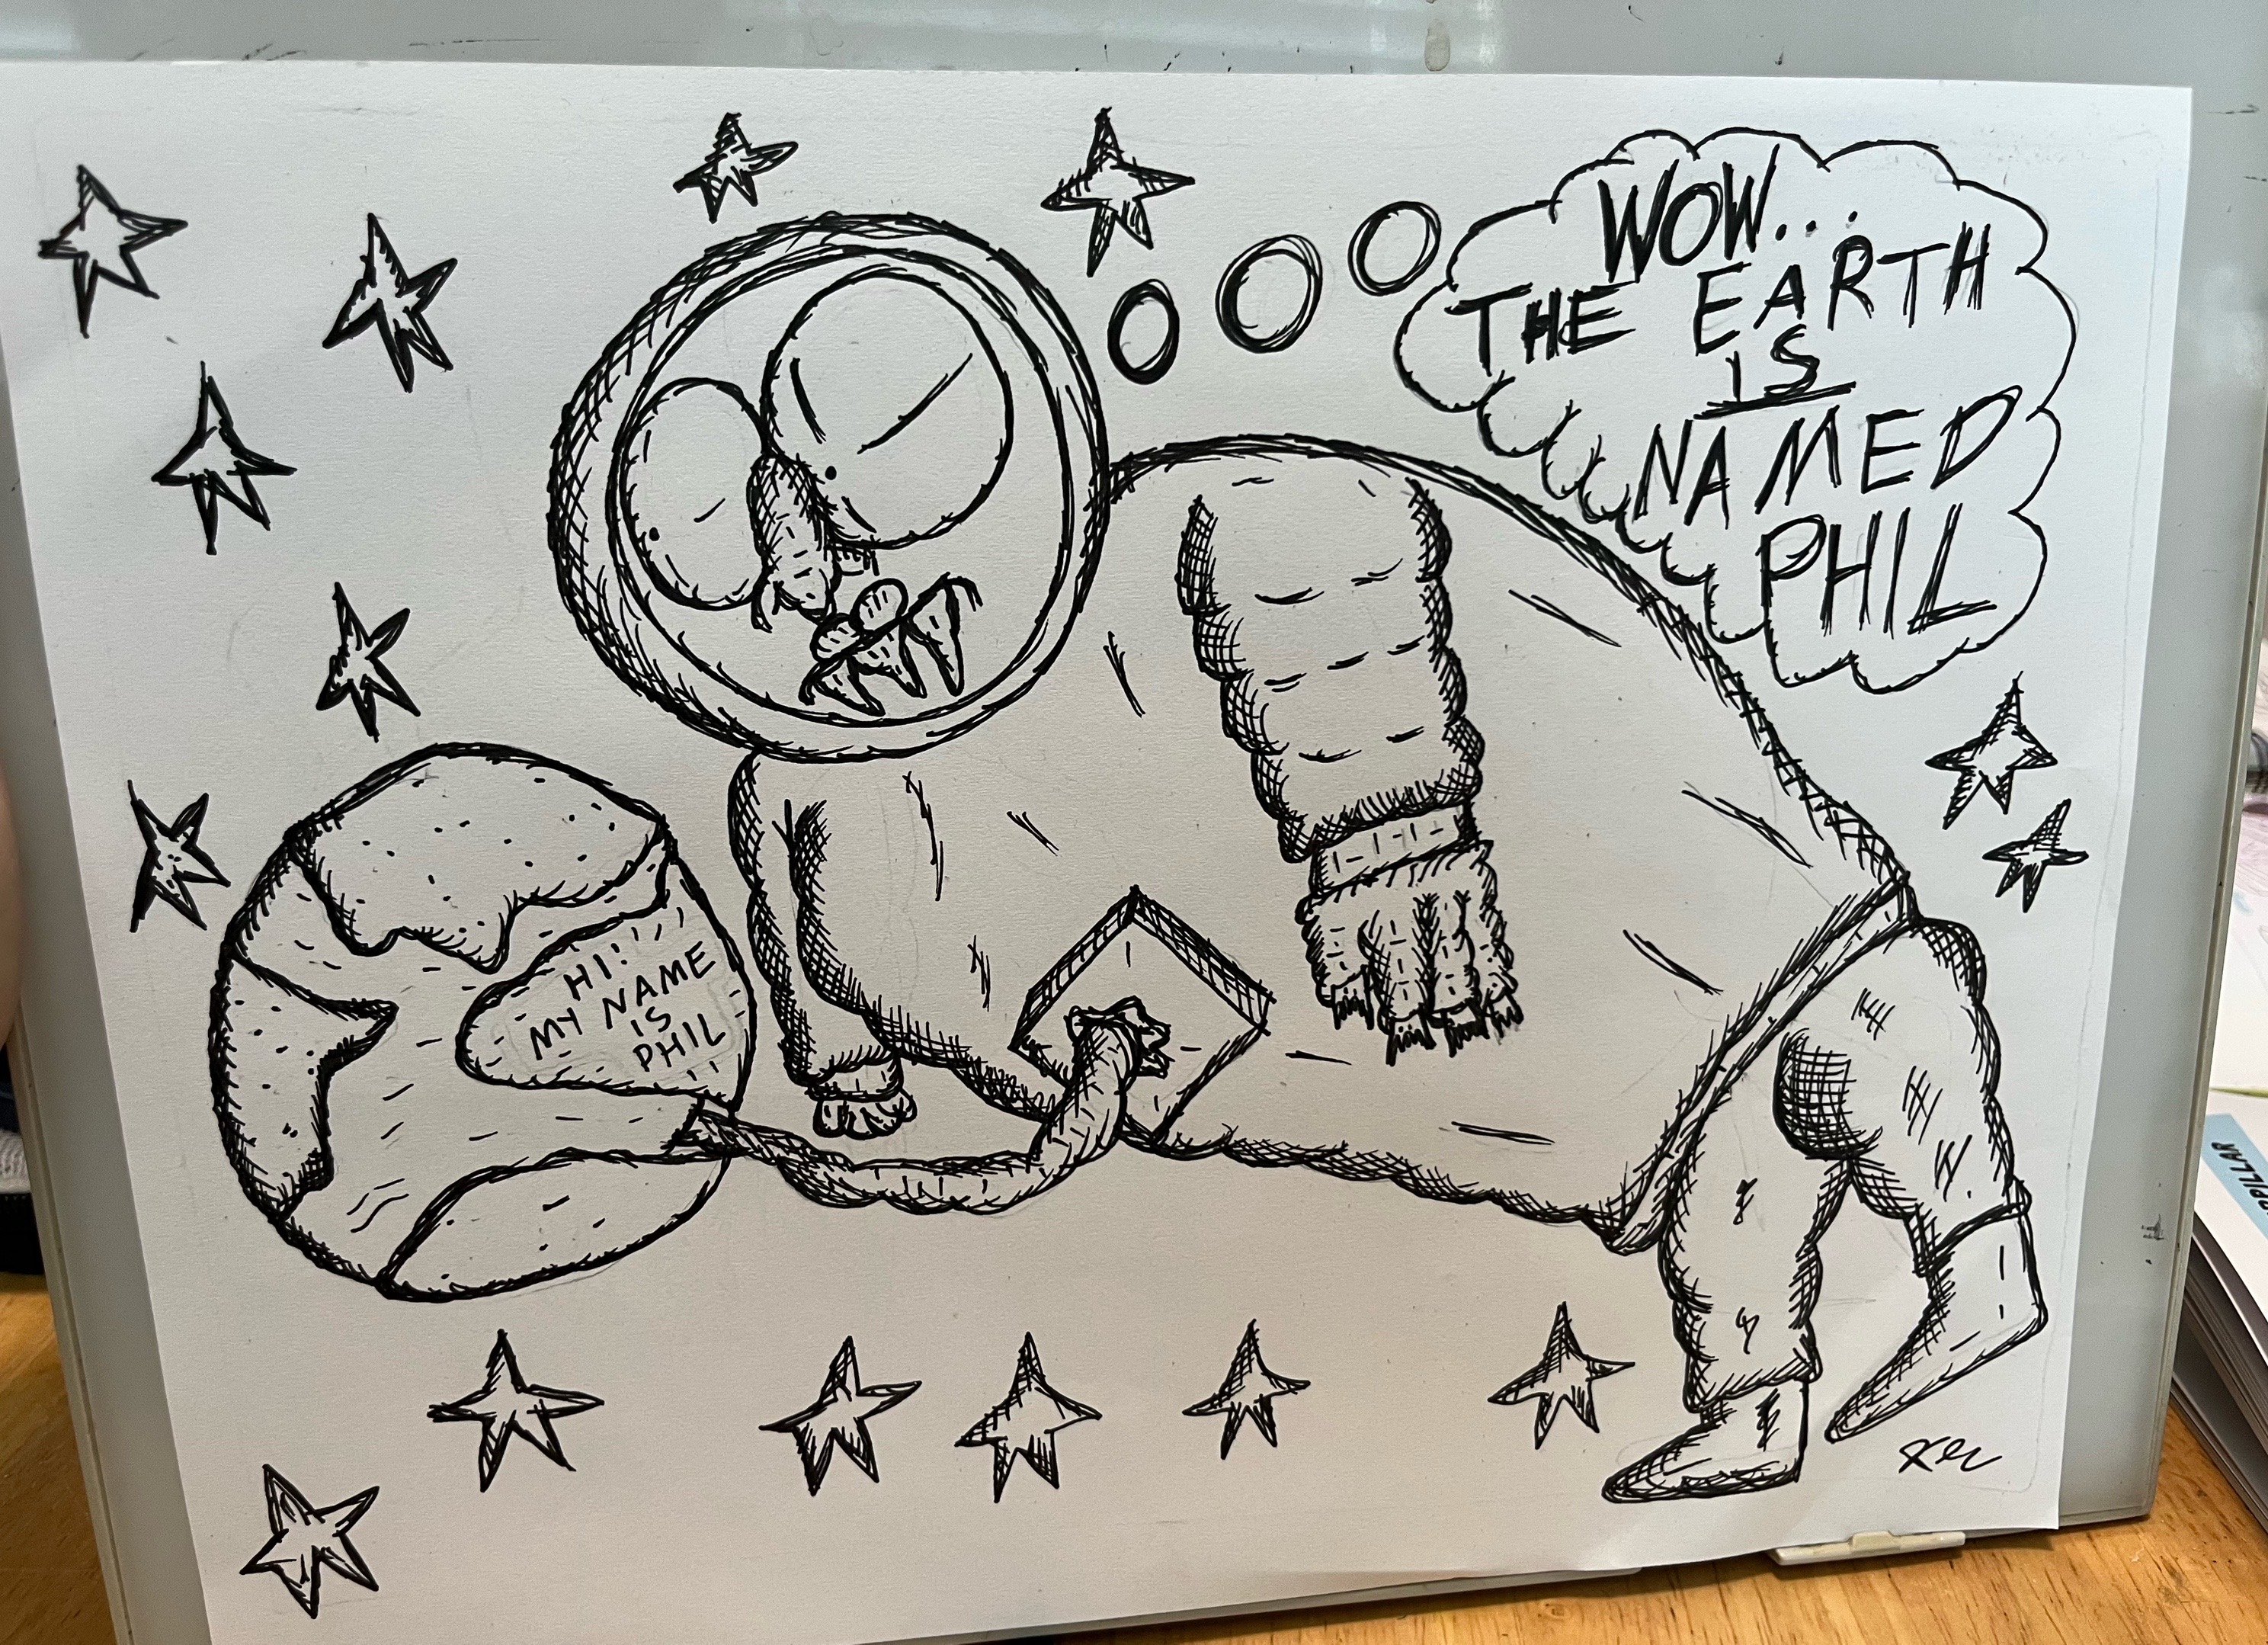 WOW...
THE EARTH
IS
NAMED
PHIL
HI!
MY NAME
IS
PHIL